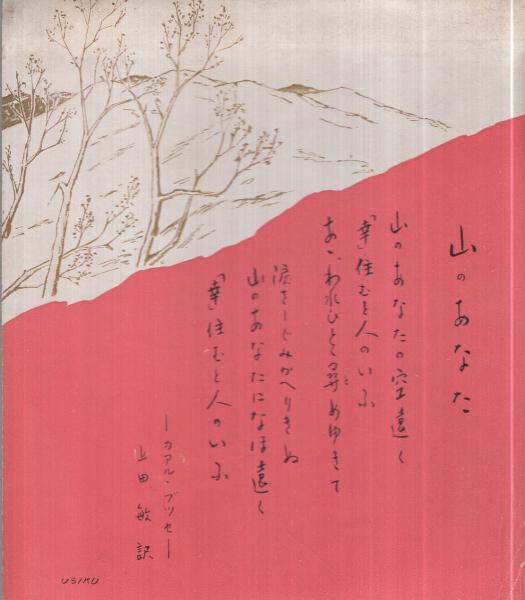 山のあなた
山のあなたの空遠く
「幸」住むと人のいふ
あゝわれひとゝ尋めゆきて
と
涙さしぐみかへりきぬ
山のあなたになほ遠く
「幸」住むと人のいふ
―カアル・ブッセ―
上田敏訳
USIKU